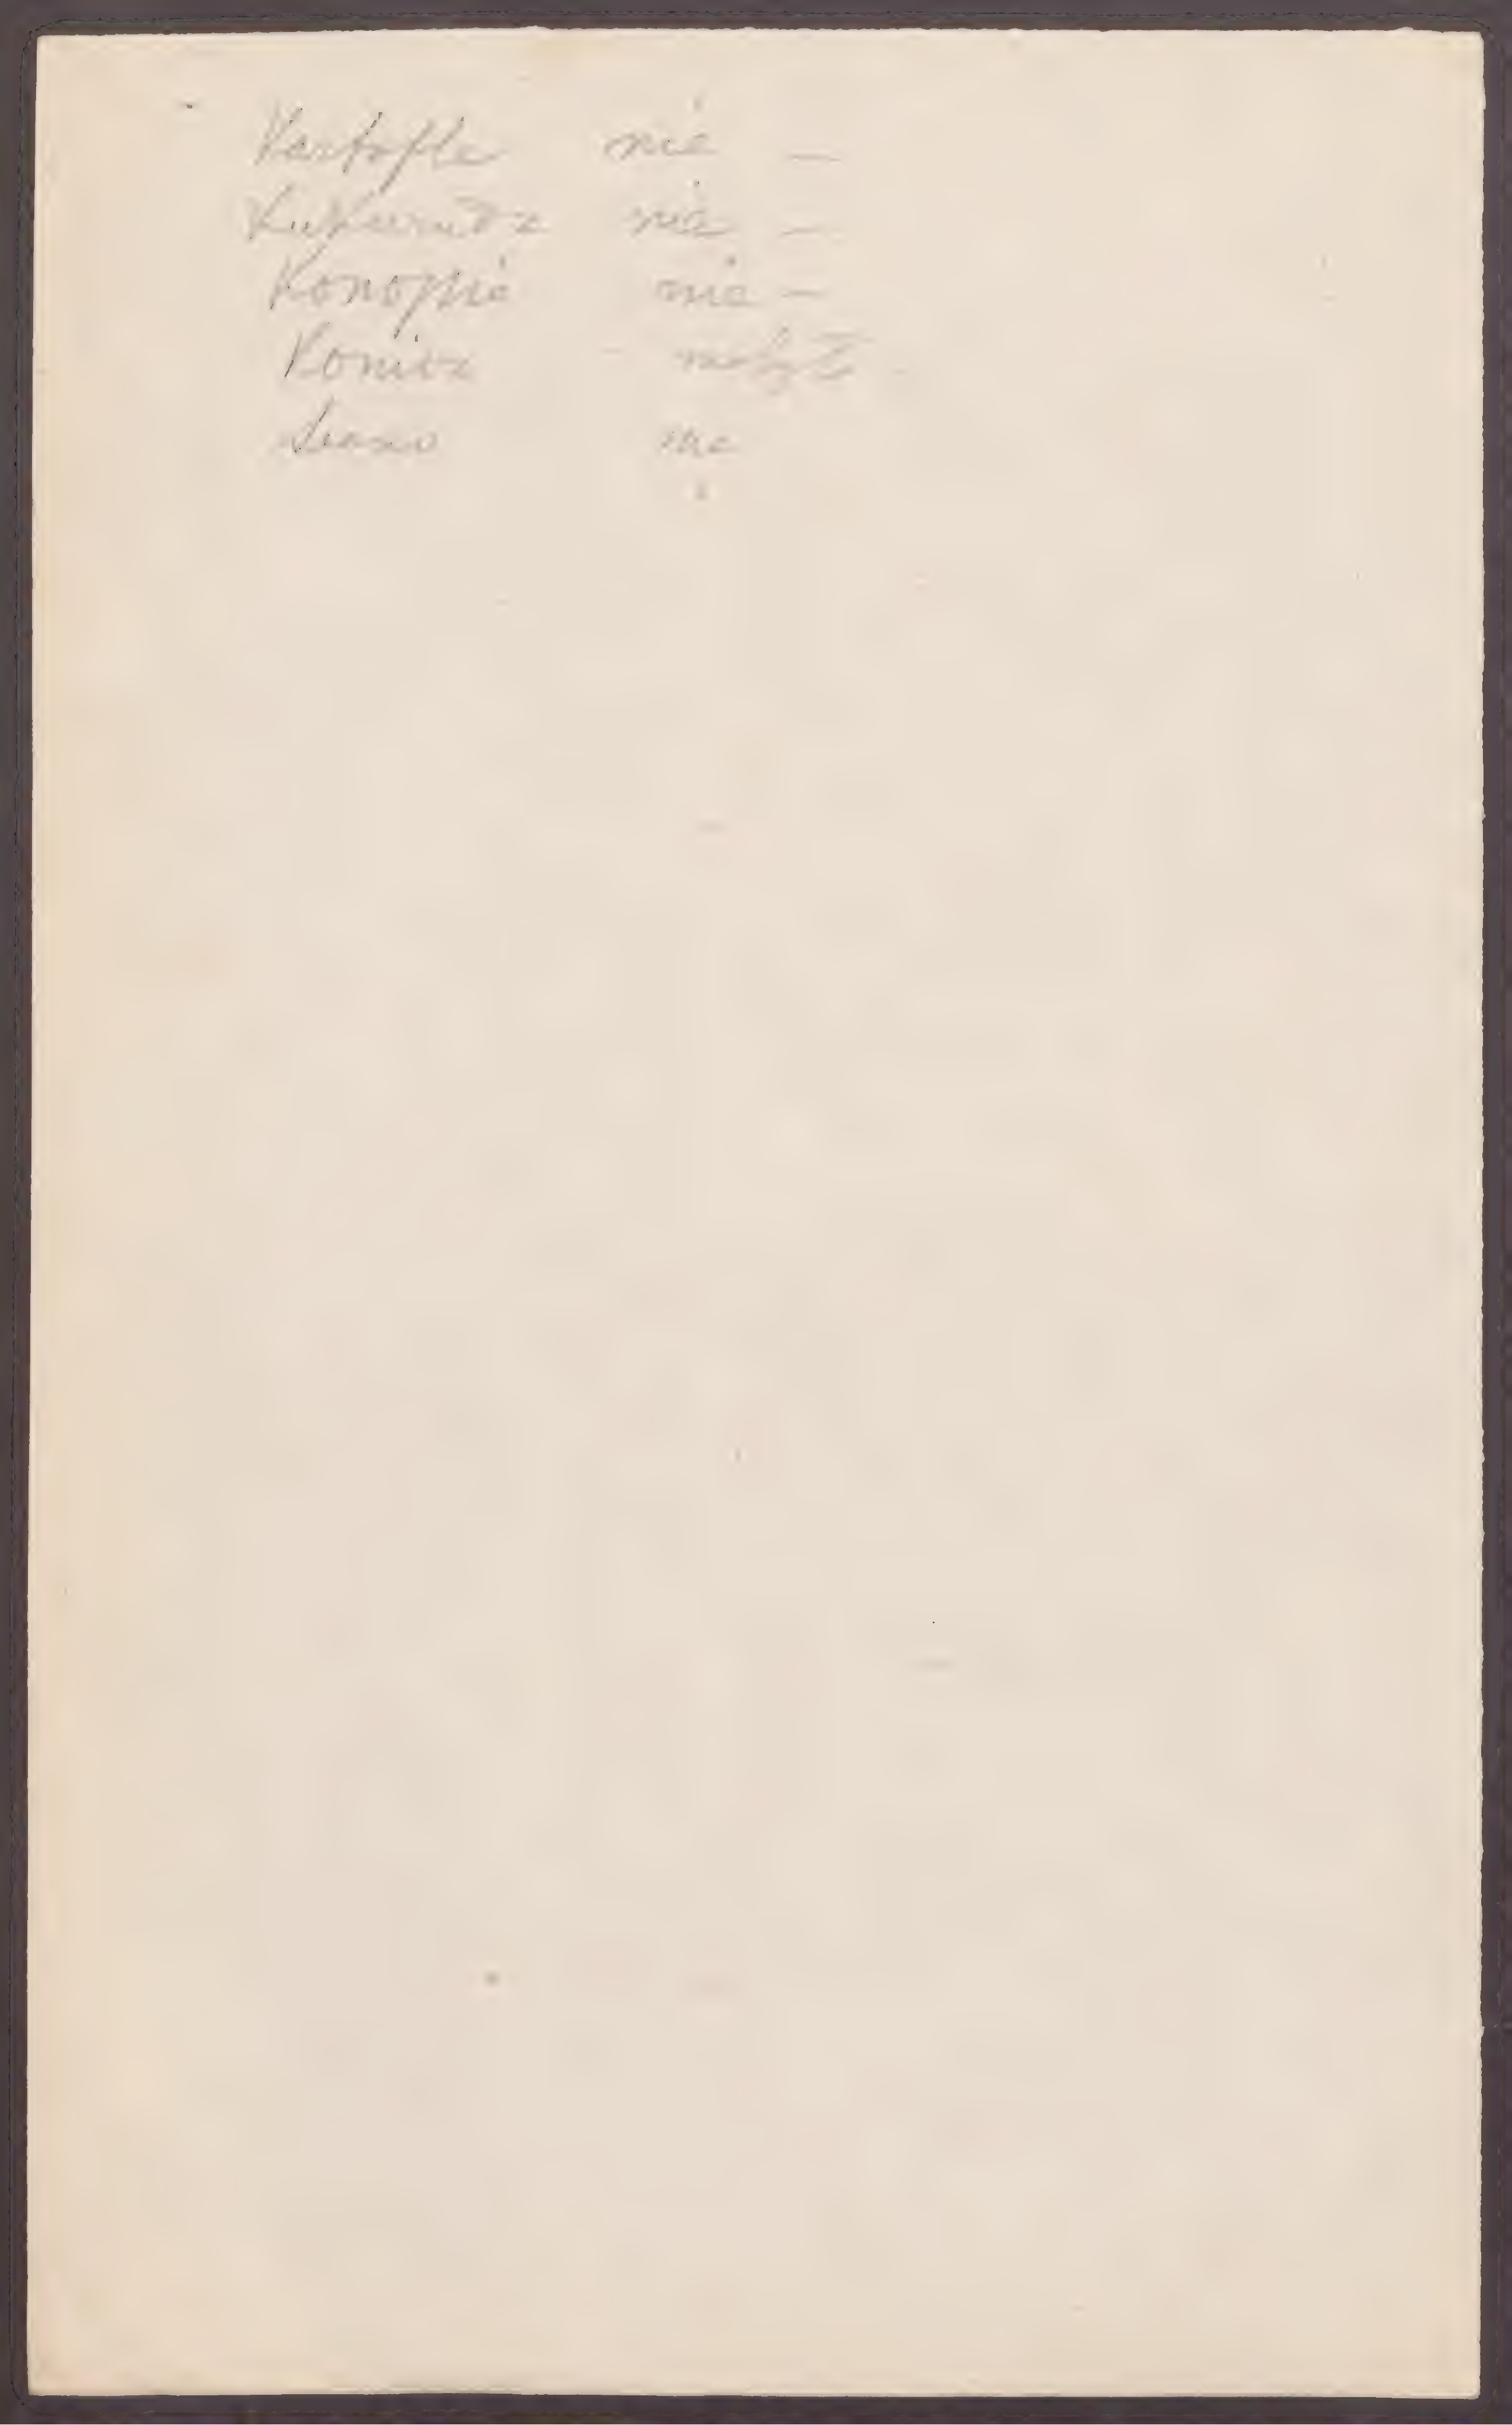 Kartofle nie —
Kukurudz nie —
Konopie nie —
Konicz
Siano nie